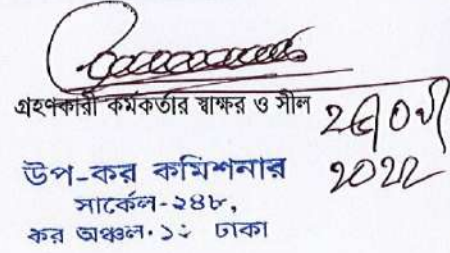 গ্রহণকারী কর্মকর্তার স্বাক্ষর ও সীল
2022
উপ-কর কমিশনার
সার্কেল-২৪৮,
কর অঞ্চল-১২ ঢাকা